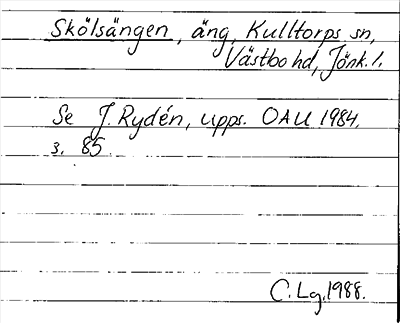 Skölsängen, äng, Kulltorps sn,
Västbo hd, Jönk. l.
Se J. Rydén, upps. OAU 1984.
s. 85
C. Lg. 1988.